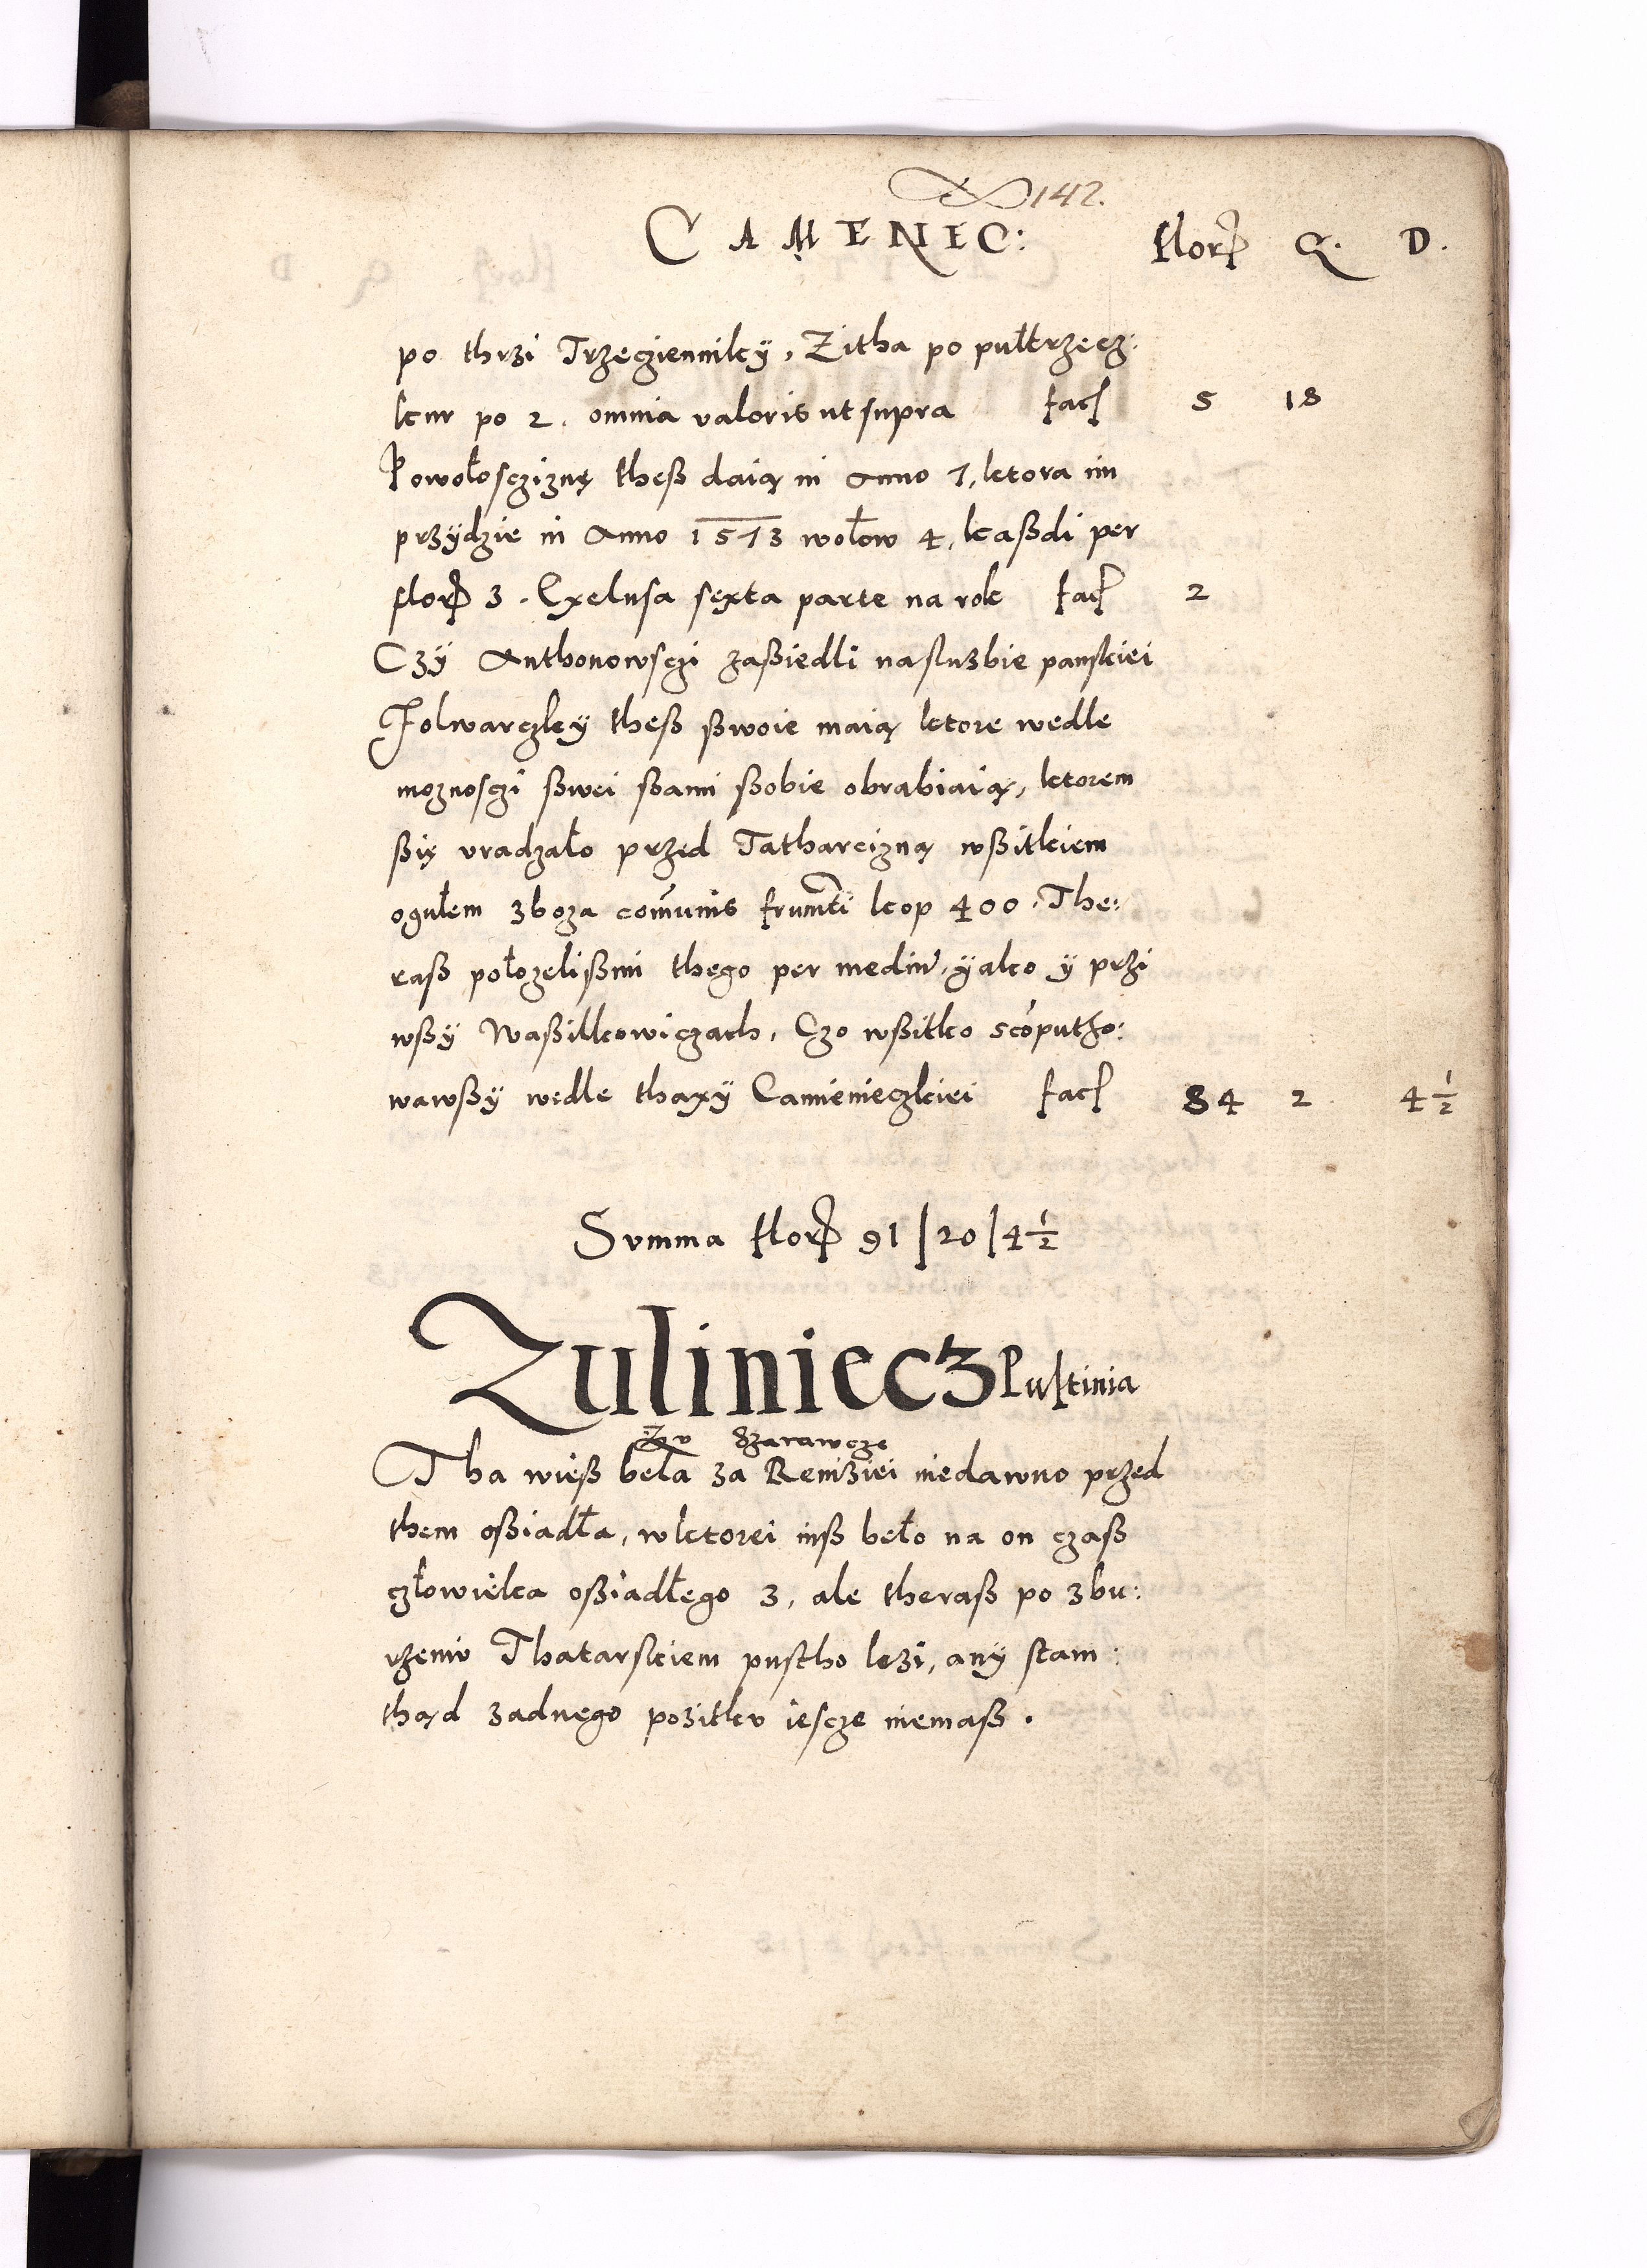 142.
CAMENIC: flor. G. D.
po thrzi Trzeczienniky, Zitha po pułtrzecz:
kur po 2. omnia valoris ut supra fac. 5 18
Powołoscziznę theß daią in Anno 7, ktora im
przÿdzie in Anno 1573 wołow 4, kaßdi per
flor. 3. Exclusa sexta parte na rok fac. 2
Czÿ Anthonowsczi zaßiedli na sluzbie panskiei
Folwarczky theß ßwoie maią ktore wedle
moznosczi ßwei ßami ßobie obrabiaią, ktorem
ßię vradzało przed Tatharcizną wßitkiem
ogułem zboza com̄unis frum̄ti kop 400. The:
raß połozelißmi thego per mediu, ÿako ÿ przi
wßÿ Waßilkowiczach, Czo wßitko scoputho:
wawßy wedle thaxÿ Camenieczkiei fac. 84 2 4½
Summa flor. 91 | 20 | 4½
Zuliniecz Pustinia
Szarawcze
Tha wieß beła za Remiziei niedawno przed
them oßiadła, w ktorei inß beło na on czaß
człowieka oßiadłego 3, ale theraß po zbu:
rzeniv Thatarskiem pustho lezi, anÿ stam:
thąd zadnego pozitkv iescze niemaß.